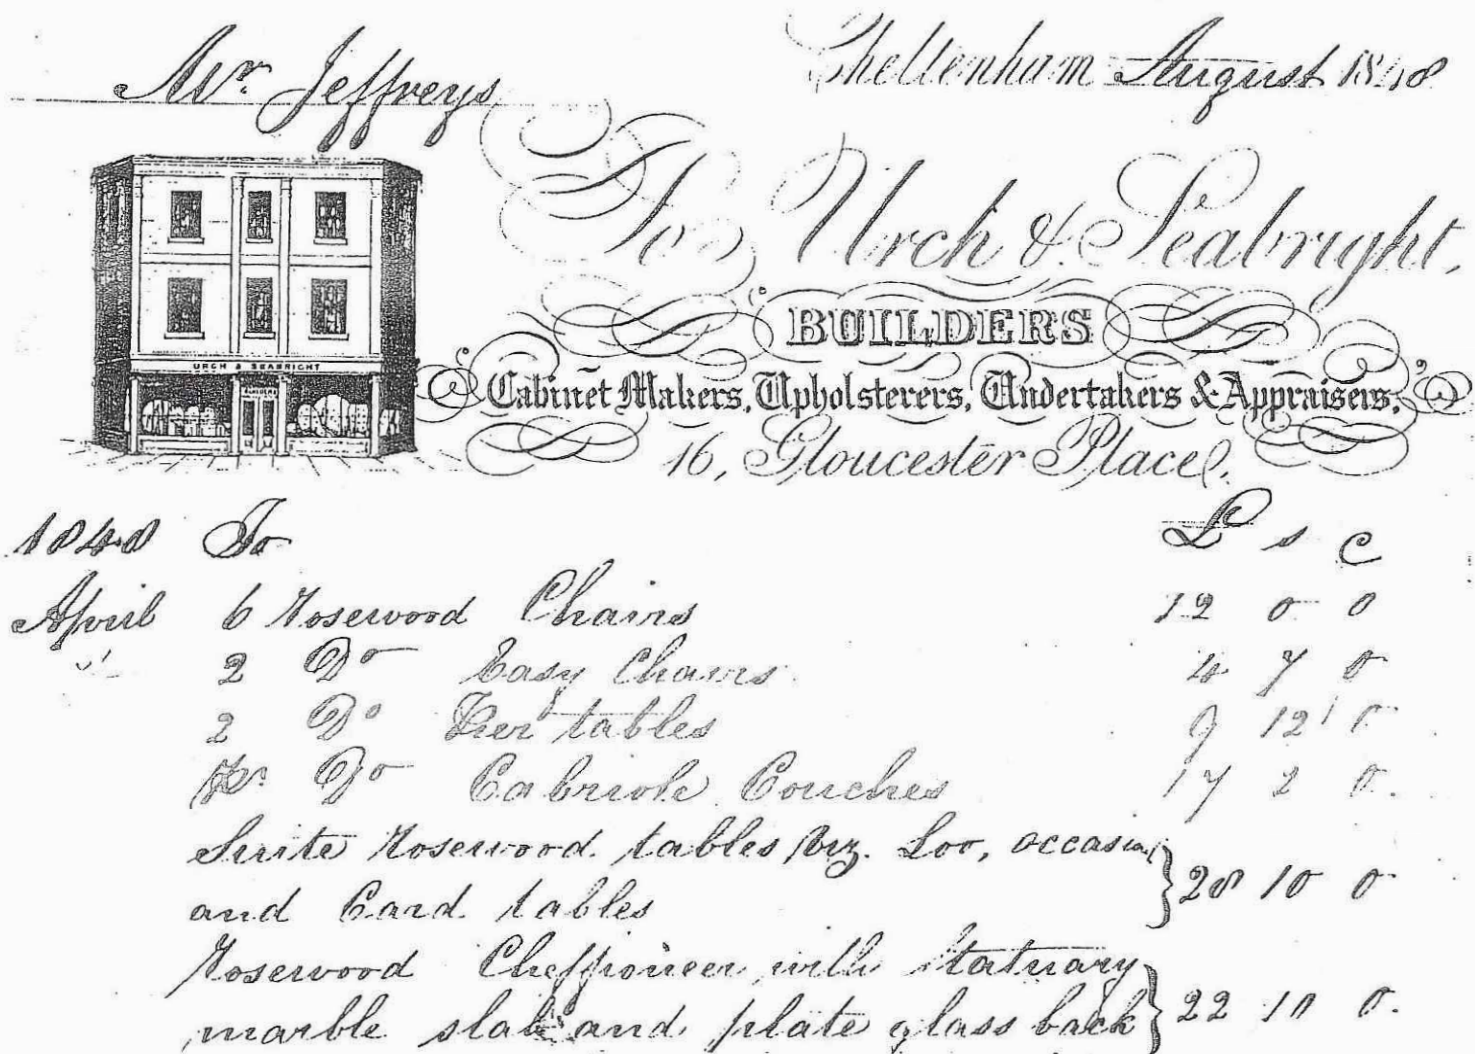 Mr. Jeffreys
Cheltenham August 1848
To Urch & Seabright,
BUILDERS
URCH & SEABRIGHT
Cabinet Makers, Upholsterers, Undertakers & Appraisers,
16, Gloucester Place.
1848 To £ s
April 6 Rosewood Chairs 12 0 0
2 Do Easy Chairs 4 7 0
2 Do tables 9 12 0
Pr. Do Cabriole Couches 17 2 0.
Suite Rosewood tables viz. Loo, occasi
and Card tables } 28 10 0
Rosewood Cheffioneer with Statuary
marble slab and plate glass back } 22 10 0.